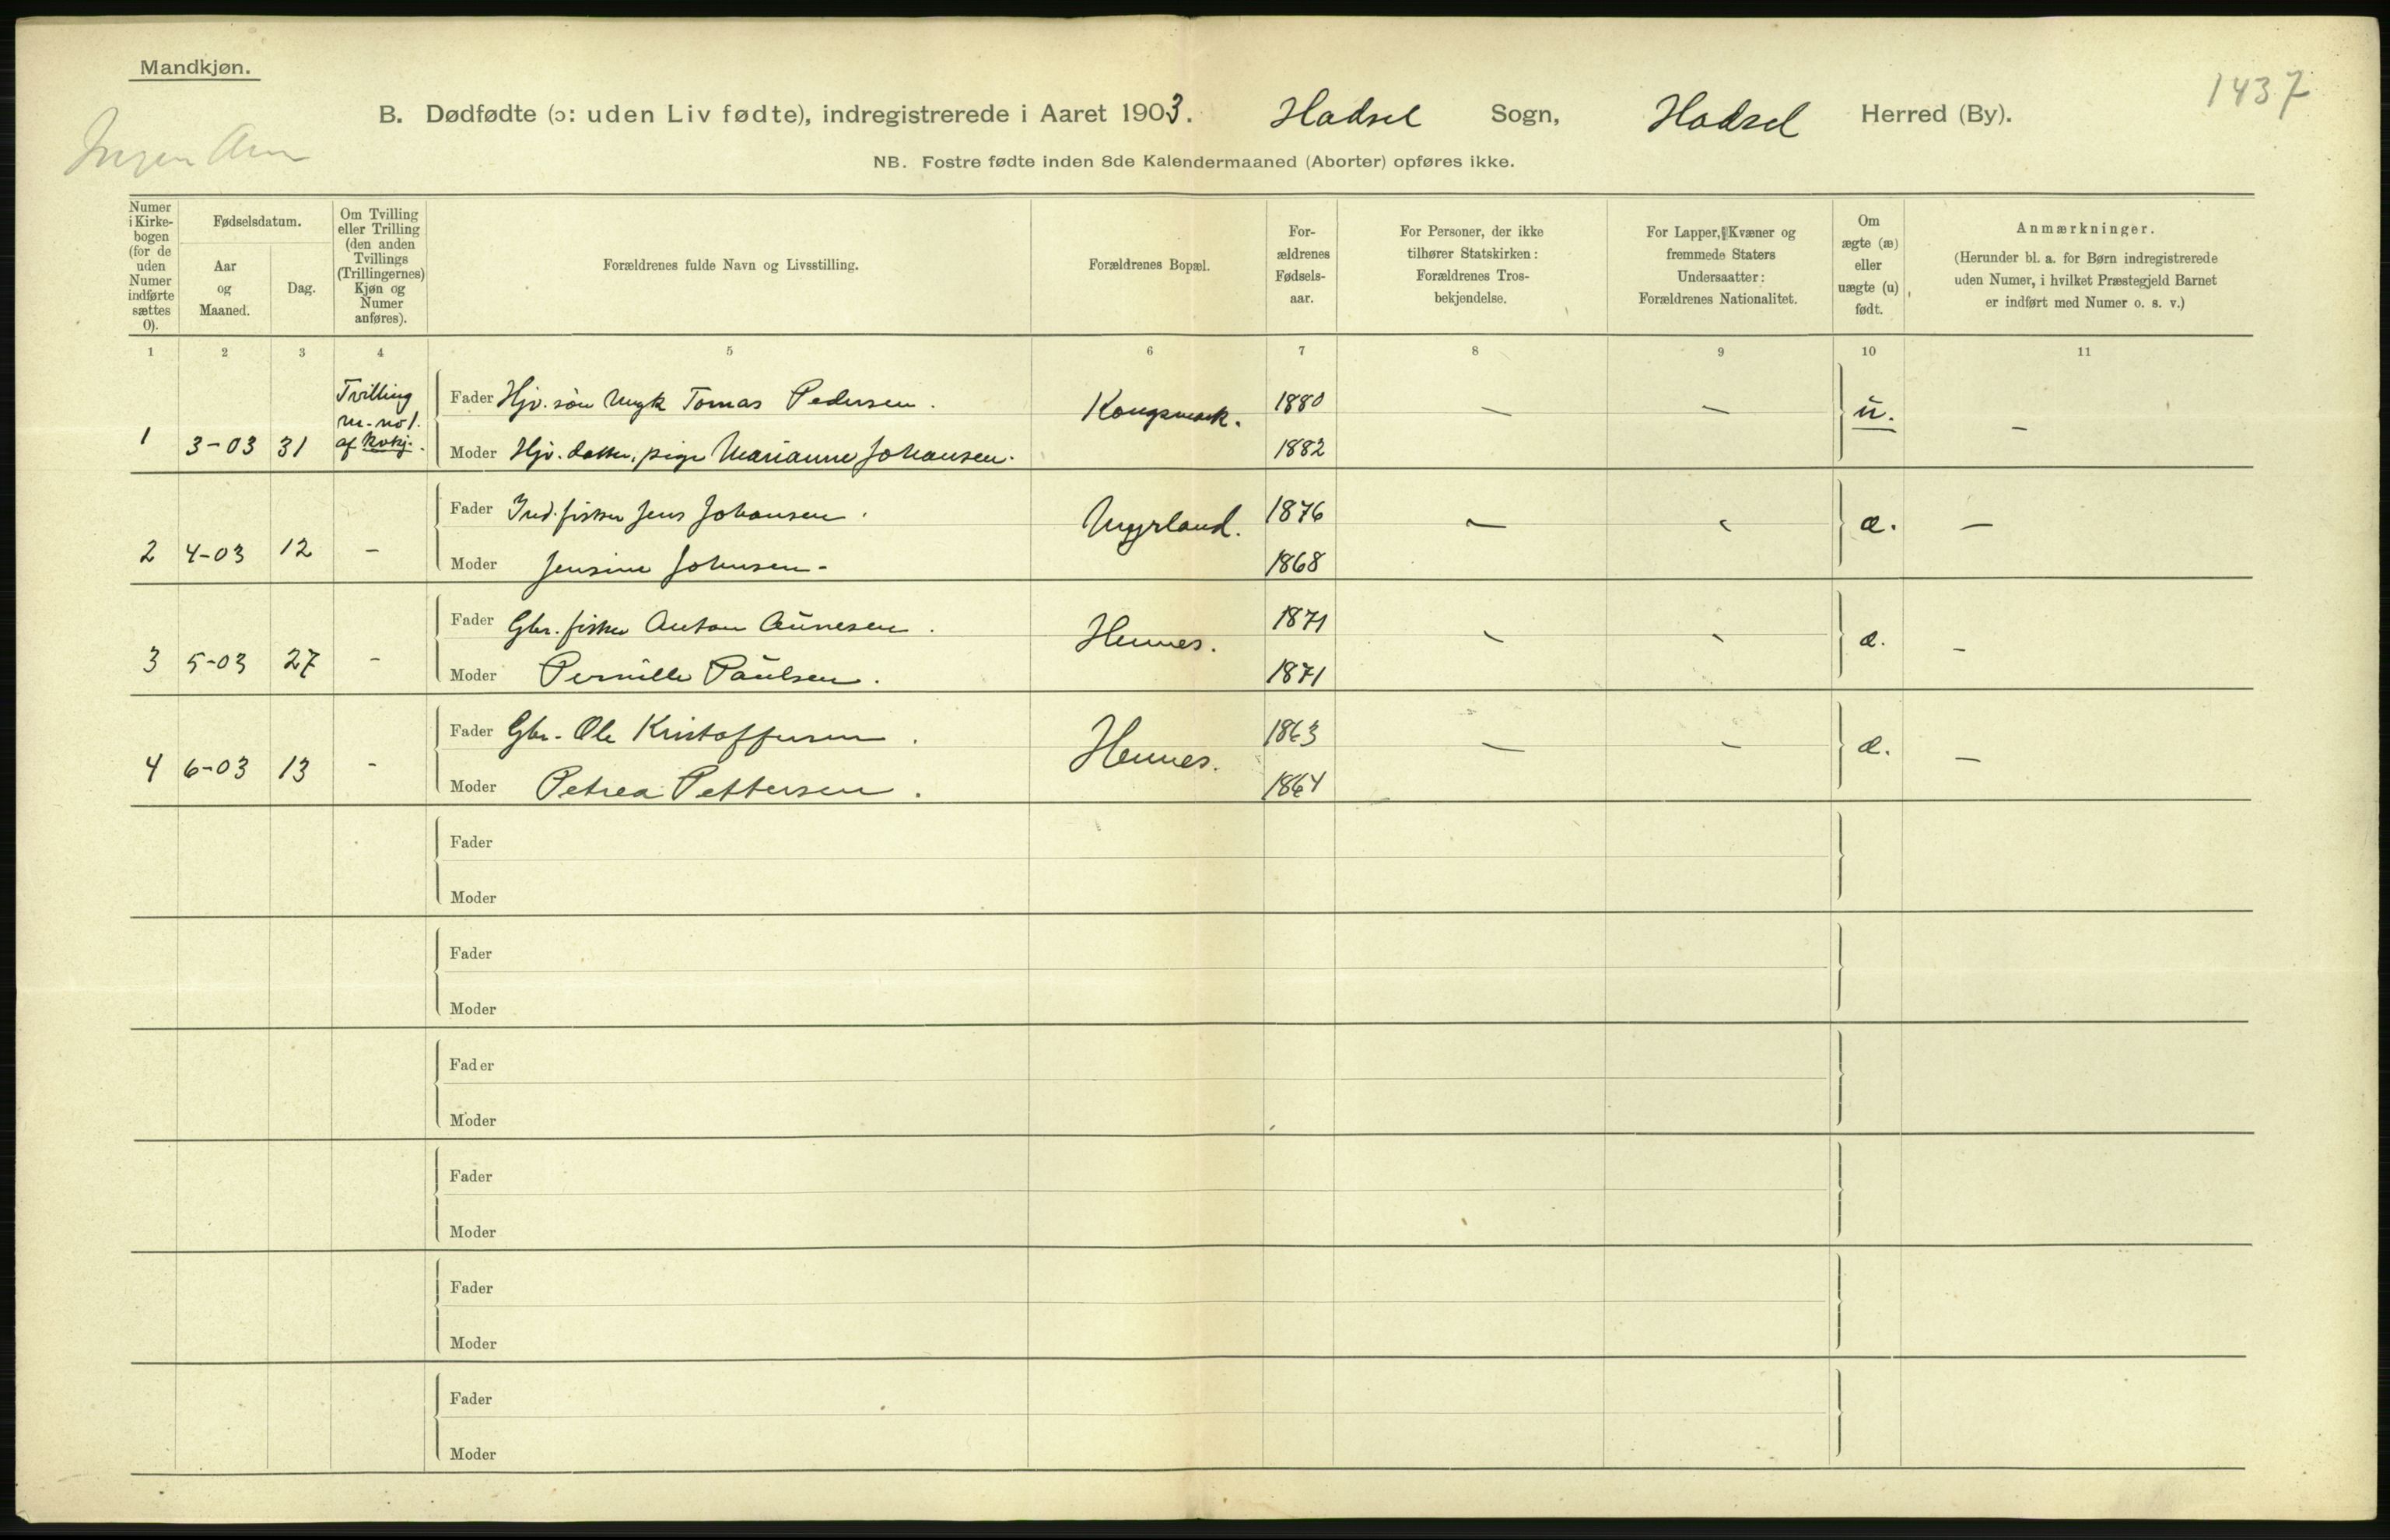 Mandkjøn.
1437
B. Dødfødte (ɔ: uden Liv fødte), indregistrerede i Aaret 1903. Hadsel Sogn, Hadsel Herred (By).
Ingen
NB. Fostre fødte inden 8de Kalendermaaned (Aborter) opføres ikke.
Numer
i Kirke-
bogen
(for de
uden
Numer
indførte
sættes
0).
Fødselsdatum.
Aar
og
Maaned.
Dag.
Om Tvilling
eller Trilling
(den anden
Tvillings
(Trillingernes)
Kjøn og
Numer
anføres).
Forældrenes fulde Navn og Livsstilling.
Forældrenes Bopæl.
For-
ældrenes
Fødsels-
aar.
For Personer, der ikke
tilhører Statskirken:
Forældrenes Tros-
bekjendelse.
For Lapper, Kvæner og
fremmede Staters
Undersaatter:
Forældrenes Nationalitet.
Om
ægte (æ)
eller
uægte (u)
født.
Anmærkninger.
(Herunder bl. a. for Børn indregistrerede
uden Numer, i hvilket Præstegjeld Barnet
er indført med Numer o. s. v.)
1 2 3 4 5 6 7 8 9 10 11
Tvilling
m. no 1.
af kvkj.
1 3-03 31
Fader Hjv. søn Ungk Tomas Pedersen. Kongsmark. 1880 — — u. —
Moder Hjv. datter, pige Marianne Johansen. 1882
Fader Ind. fisker Jens Johansen. Myrland. 1876 — - æ. —
2 4-03 12 -
Moder Jensine Johnsen - 1868
Fader Gbr. fisker Anton Aunesen. Hennes. 1871 - - æ. -
3 5-03 27 -
Moder Pernille Paulsen. 1871
Fader Gbr. Ole Kristoffersen. Hennes. 1863 — - æ. —
4 6-03 13 -
Moder Petrea Pettersen. 1864
Fader
Moder
Fader
Moder
Fader
Moder
Fader
Moder
Fader
Moder
Fader
Moder